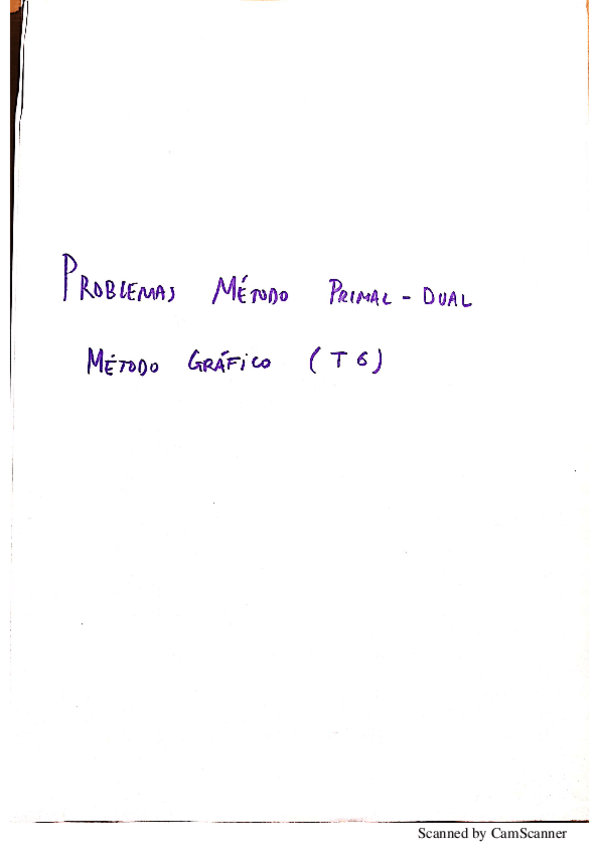 PROBLEMAS MÉTODO PRIMAL - DUAL
MÉTODO GRÁFICO (T6)
Scanned by CamScanner